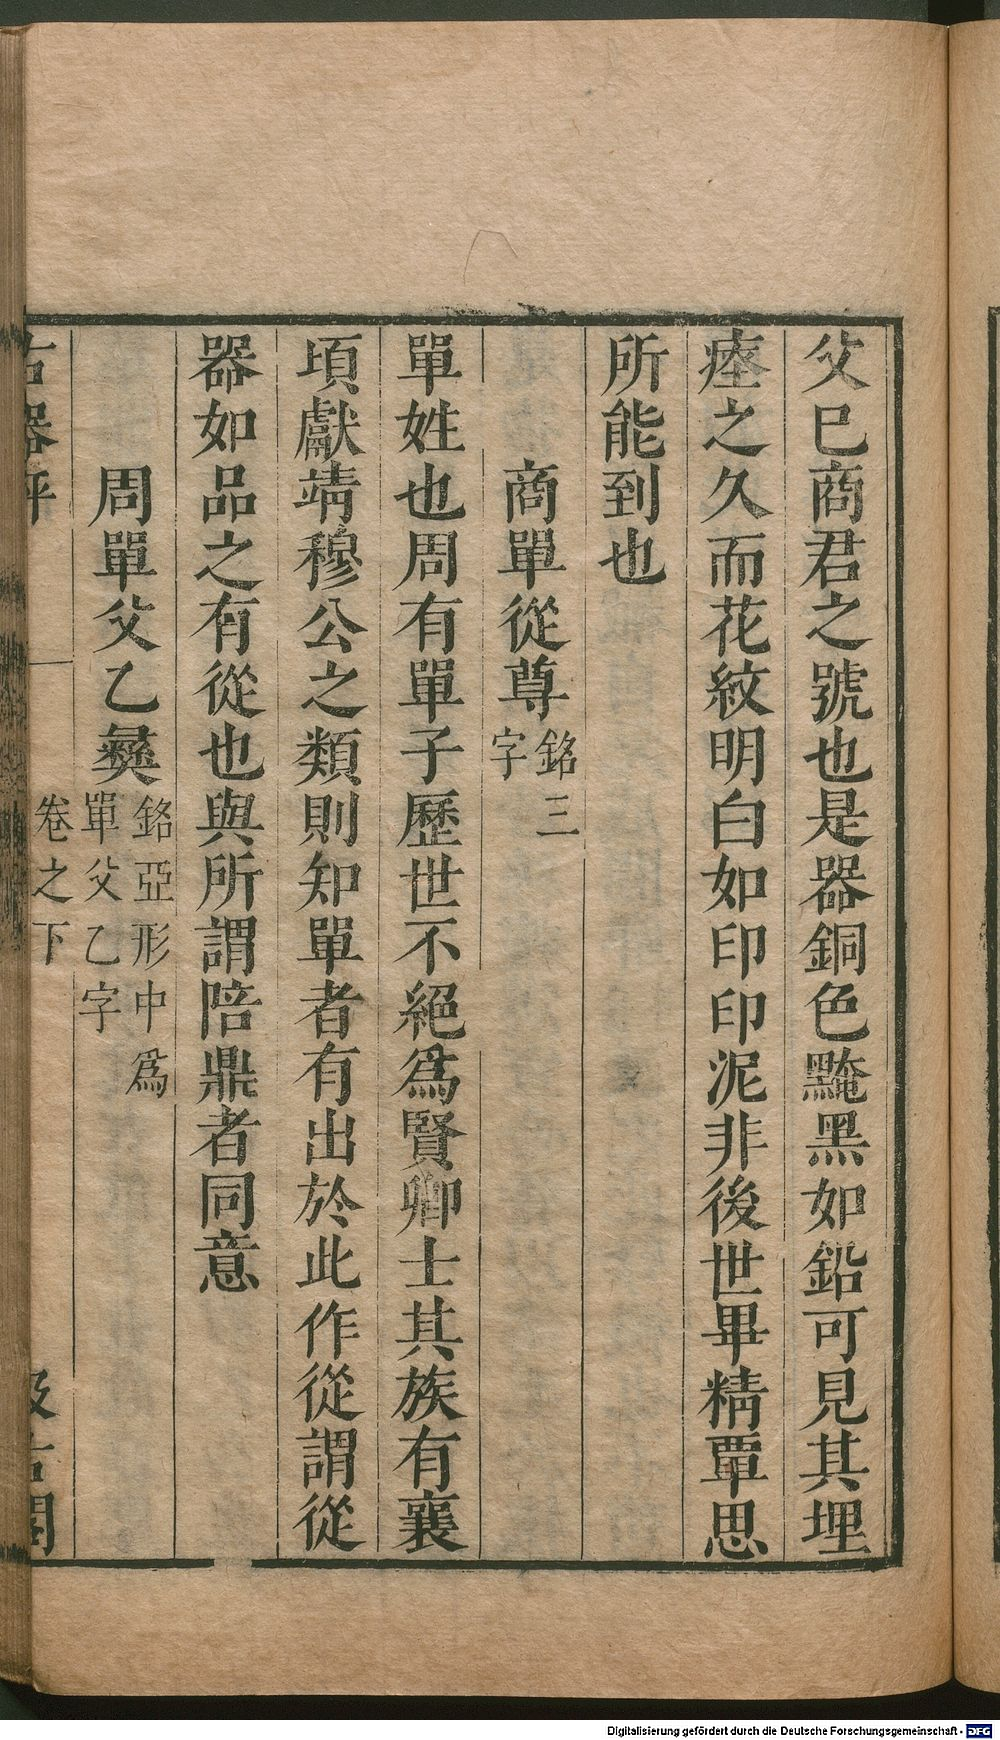 父巳商君之號也是器銅色黤黑如鉛可見其埋
瘞之久而花紋明白如印印泥非後世畢精覃思
所能到也
商單從尊銘三
字
單姓也周有單子歷世不絕爲賢卿士其族有襄
頃獻靖穆公之類則知單者有出於此作從謂從
器如品之有從也與所謂陪鼎者同意
周單父乙彝銘亞形中爲
單父乙字
古器評
卷之下
汲古閣
Digitalisierung gefördert durch die Deutsche Forschungsgemeinschaft - DFG